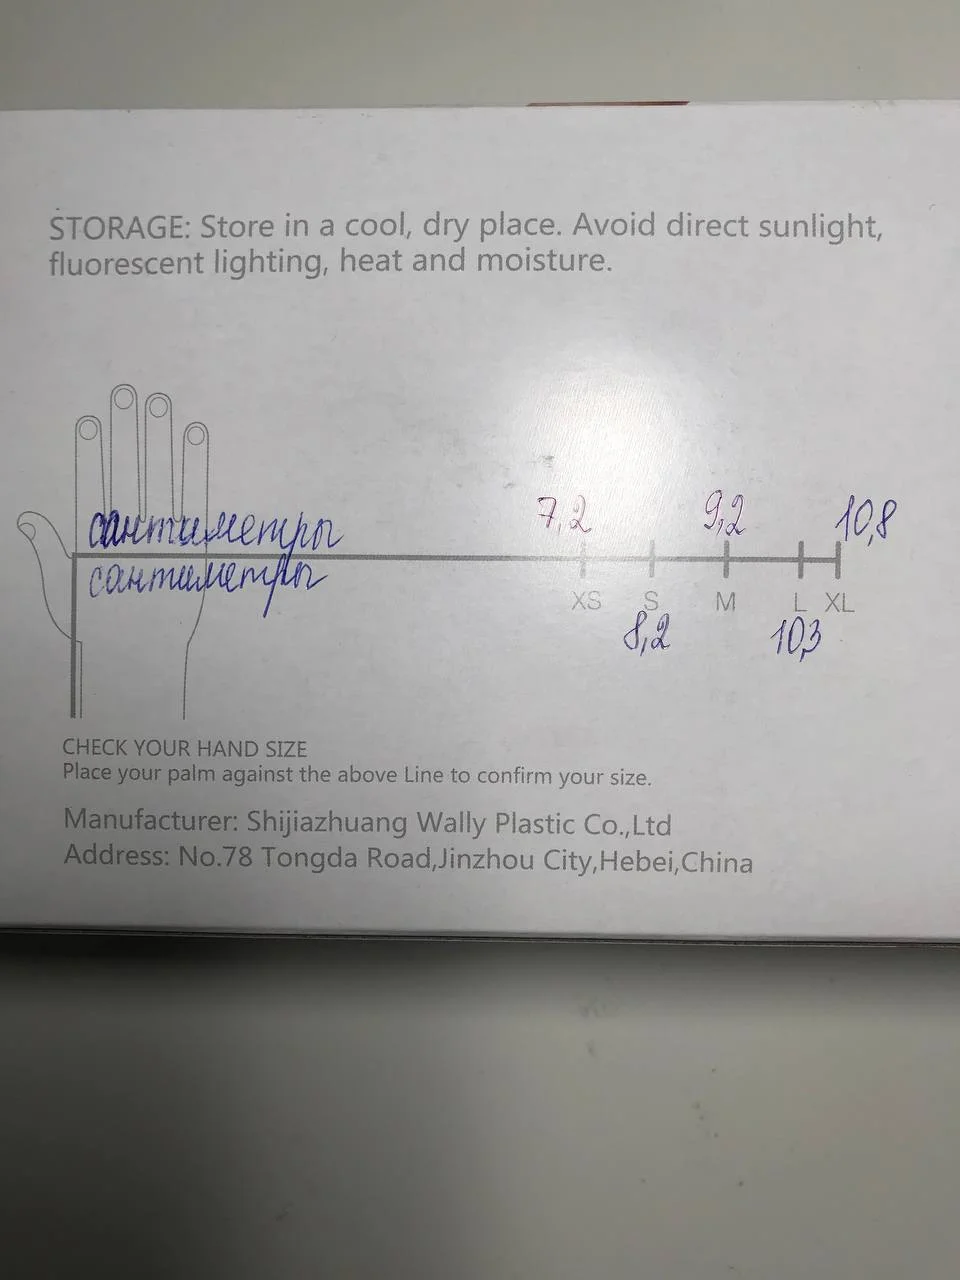 STORAGE: Store in a cool, dry place. Avoid direct sunlight,
fluorescent lighting, heat and moisture.
7,2 9,2 10,8
сантиметры
сантиметры
XS S M L XL
8,2 10,3
CHECK YOUR HAND SIZE
Place your palm against the above Line to confirm your size.
Manufacturer: Shijiazhuang Wally Plastic Co.,Ltd
Address: No.78 Tongda Road,Jinzhou City,Hebei,China